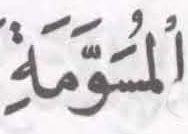 اَلْمُسَوَّمَةِ